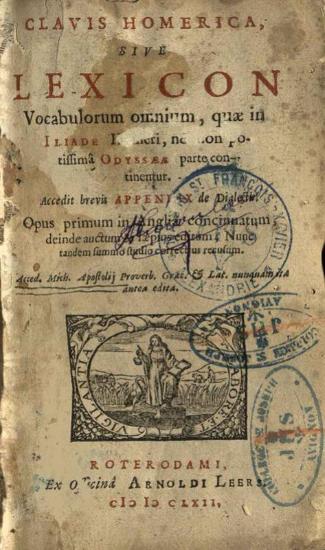 CLAVIS HOMERICA,
SIVE
LEXICON
Vocabulorum omnium, quæ in
ILIADE Homeri, nec non po-
tissimâ ODYSSÆÆ parte con-
tinentur.
Accedit brevis APPENDIX de Dialectis.
Opus primum in Angliâ concinnatum
deinde auctum & sæpius editum: Nunc
tandem summo studio correctius recusum.
Acced. Mich. Apostolij Proverb. Græc. & Lat. nunquam ita
antea edita.
VIGILANTIA
ROTERODAMI,
Ex Officinâ ARNOLDI LEERS,
cIɔ Iɔ CLXII,
ST FRANÇOIS XAVIER
ALEXANDRIE